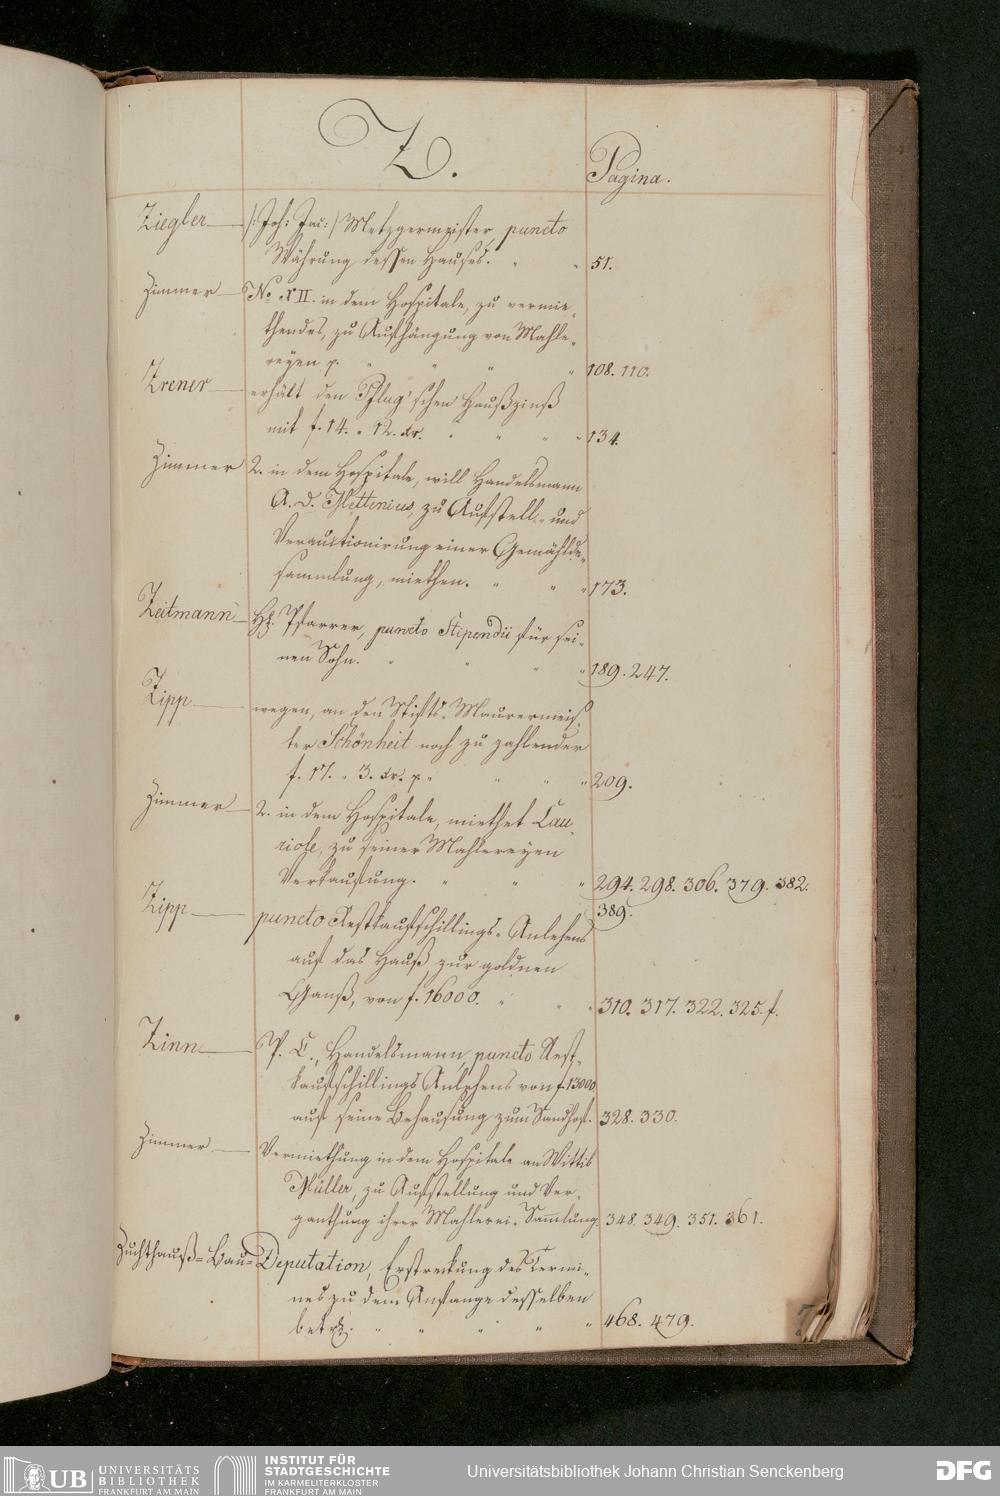 Z.
Pagina.
Ziegler — /: Joh: Jac: / Metzgermeister puncto
Währung dessen Hauses. " " 51.
Zimmer — No. XII. in dem Hospitale, zu vermie-
thendes, zu Aufhängung von Mahle-
reyen p. " " " " 108. 110.
Zrener — erhält den Pflug'schen Haußzinß
mit f. 14. " 12. xr. " " " " 134.
Zimmer 2. in dem Hospitale, will Handelsmann
A. D. Mettenius, zu Aufstell- und
Verauctionirung einer Gemählde-
sammlung, miethen. " " " 173.
Zeitmann — Pfarrer, puncto Stipendii für sei-
nen Sohn. " " " " 189. 247.
Zipp — wegen, an den Stifts-Maurermeis-
ter Schönheit noch zu zahlender
f. 17. " 3. xr. p " " " " 209.
Zimmer — 2. in dem Hospitale, miethet Cau-
riole, zu seiner Mahlereyen
Verkaufung. " " " 294. 298. 306. 379. 382.
389.
Zipp — puncto Restkaufschillings-Anlehens
auf das Hauß zur goldnen
Ganß, von f. 16000. " " " 310. 317. 322. 325. f.
Zinn — P. C., Handelsmann, puncto Rest-
kaufschillings Anlehens von f. 13000
auf seine Behausung zum Sandhof. 328. 330.
Zimmer — Vermiethung in dem Hospitale an Wittib
Müller, zu Aufstellung und Ver-
ganthung ihrer Mahlerei-Sammlung 348. 349. 351. 361.
Zuchthauß-Bau-Deputation, Erstreckung des Termi-
nes zu dem Anfange desselben
betr. " " " " " 468. 479.
UB UNIVERSITÄTS
BIBLIOTHEK
FRANKFURT AM MAIN
INSTITUT FÜR
STADTGESCHICHTE
IM KARMELITERKLOSTER
FRANKFURT AM MAIN
Universitätsbibliothek Johann Christian Senckenberg
DFG